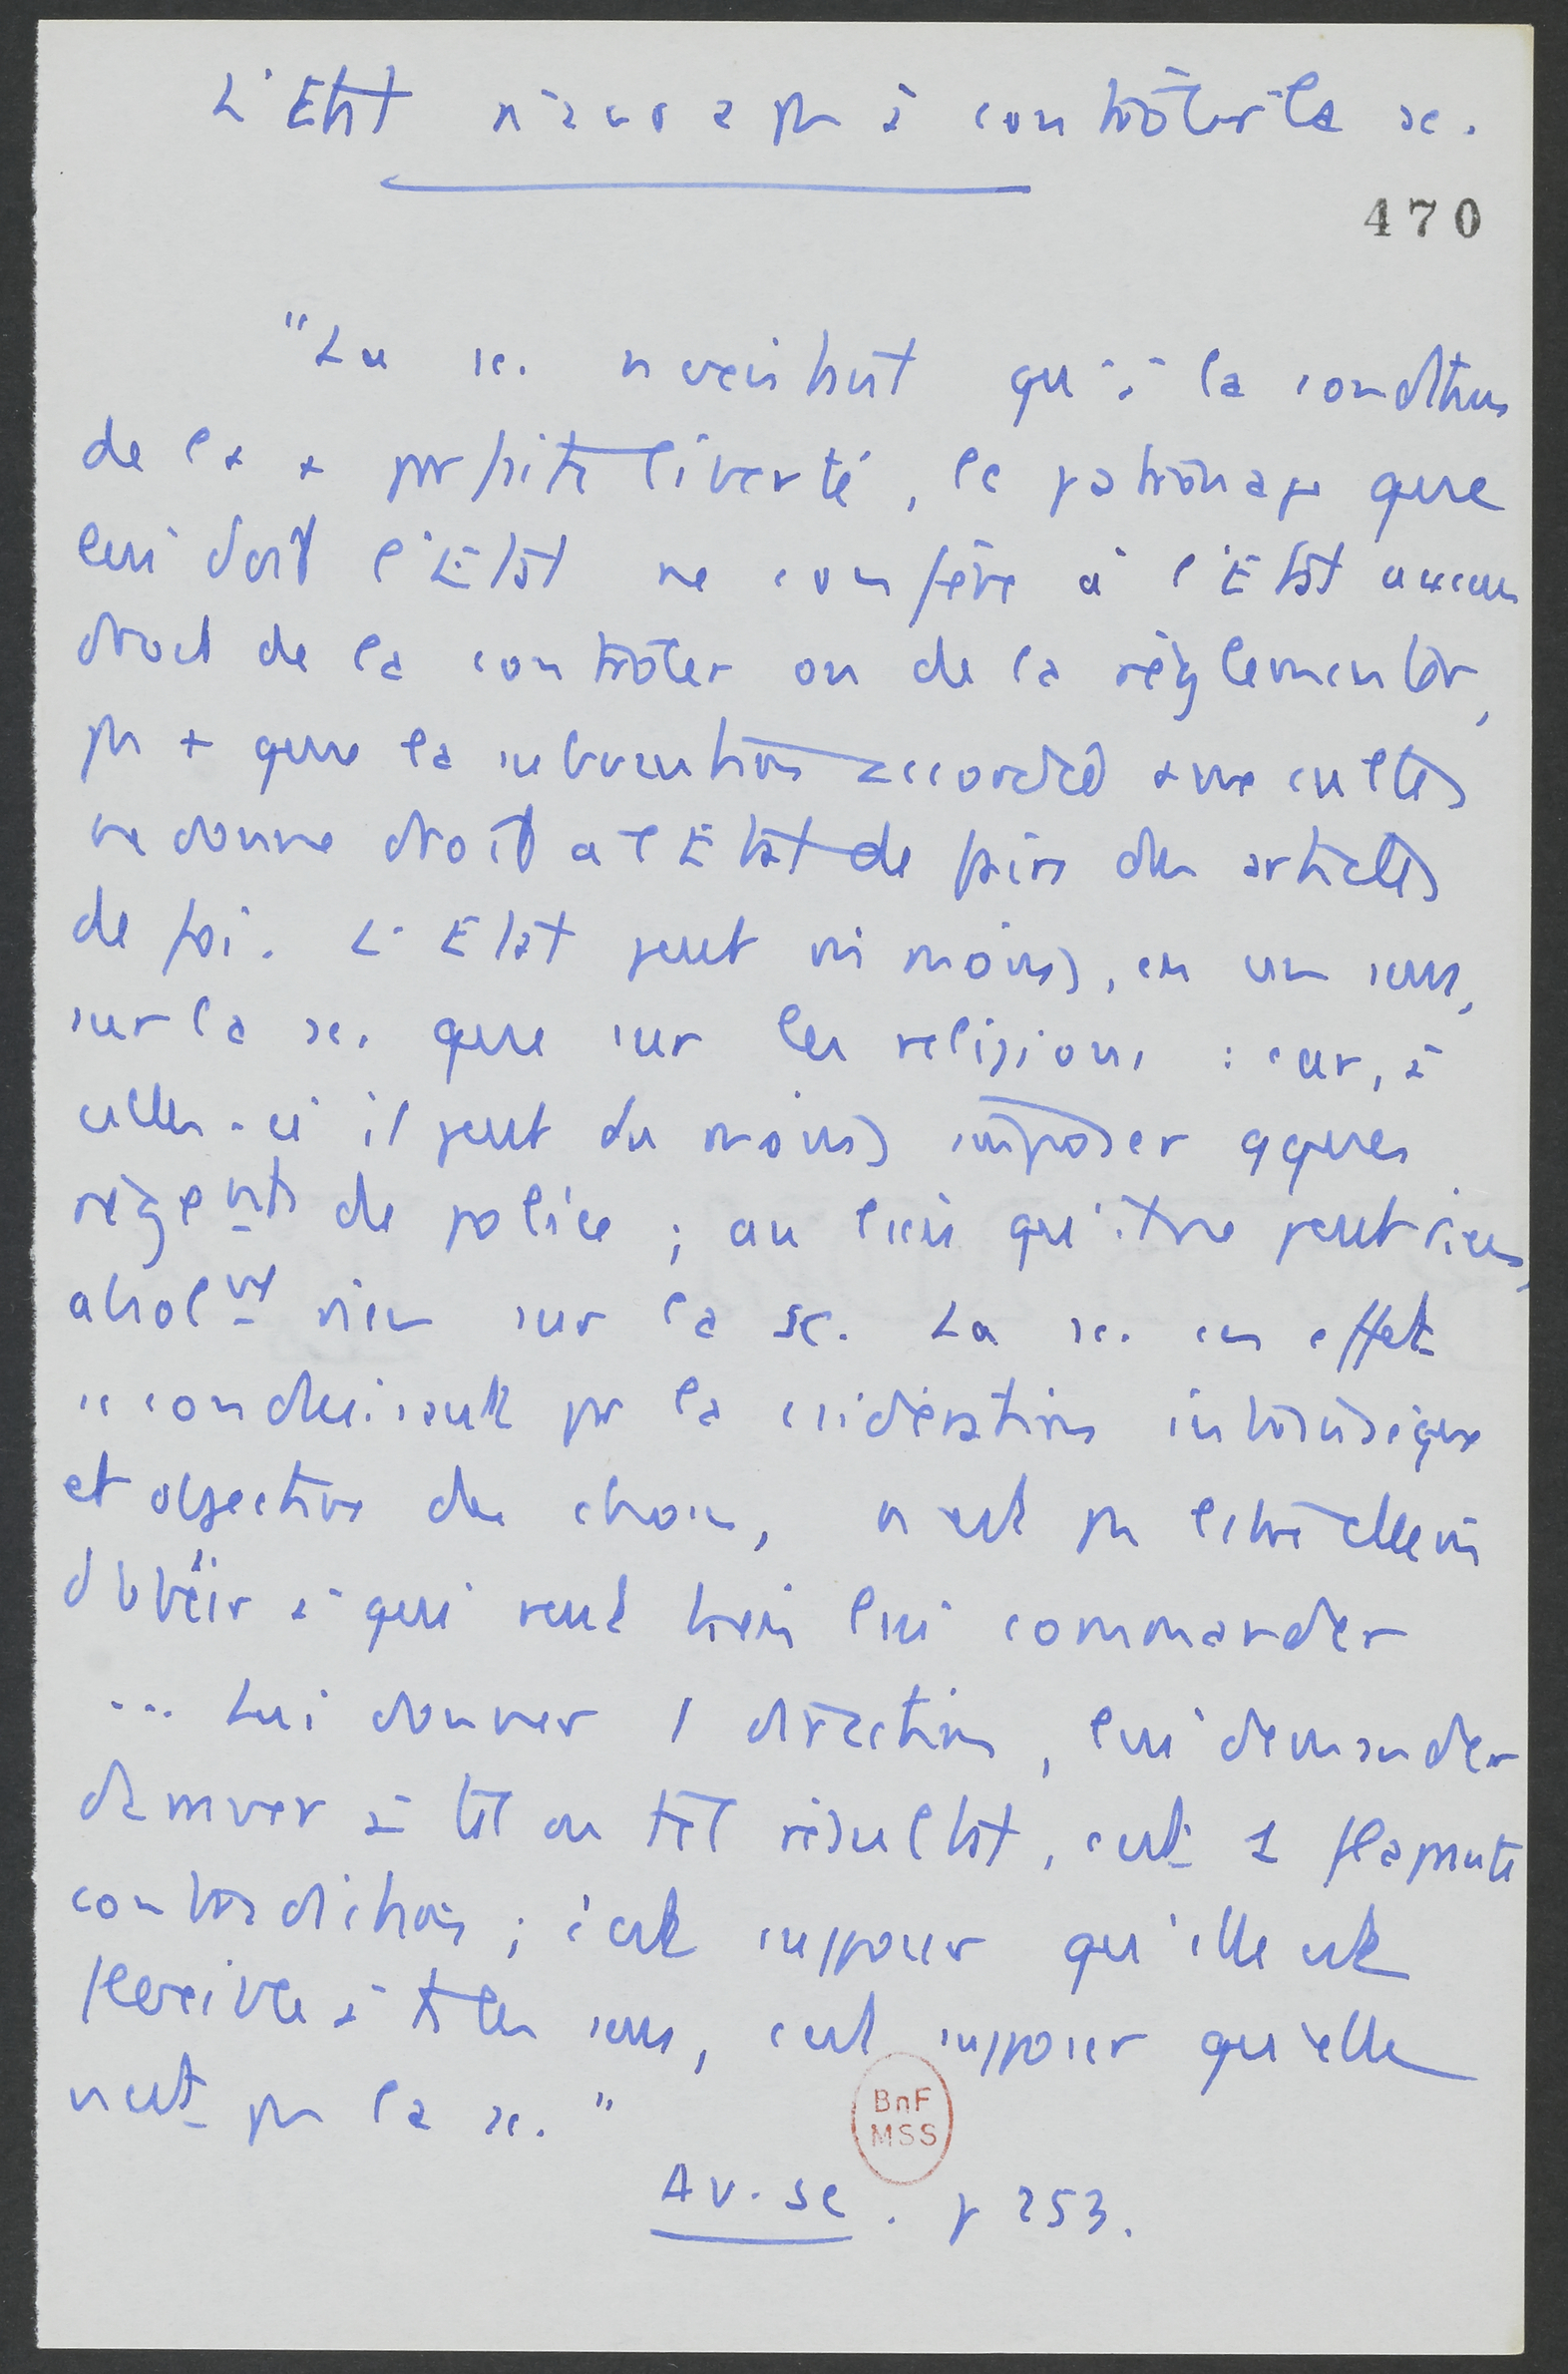 L'Etat n'aura pas à contrôler la sc.
470
"La sc. n'existant qu'à la condition
de la + parfaite liberté, le patronage que
lui doit l'Etat ne confère à l'Etat aucun
droit de la contrôler ou de la réglementer,
pas + que la subvention accordée aux cultes
ne donne droit à l'Etat de faire des articles
de foi. L'Etat peut mi moins, en un sens,
sur la sc. que sur les religions : car, à
celles-ci il peut du moins imposer qques
règlmts de police ; au lieu qu'il ne peut rien,
absolmt rien sur la sc. La sc. en effet
se conduisant par la csidération intrinsèque
et objective des choses, n'est pas
d'obéir à qui veut bien lui commander
... Lui donner 1 direction, lui demander
d'arriver à tel ou tel résultat, c'est 1 flagrante
contradiction ; c'est supposer qu'elle est
flexible à ts les sens, c'est supposer qu'elle
n'est pas la sc."
BnF
MSS
Av. sc. p 253.